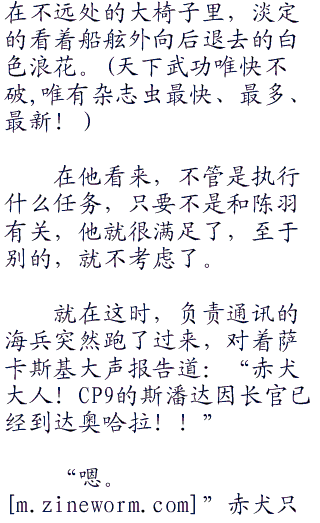 在不远处的大椅子里，淡定
的看着船舷外向后退去的白
色浪花。(天下武功唯快不
破,唯有杂志虫最快、最多、
最新！)
在他看来，不管是执行
什么任务，只要不是和陈羽
有关，他就很满足了，至于
别的，就不考虑了。
就在这时，负责通讯的
海兵突然跑了过来，对着萨
卡斯基大声报告道：“赤犬
大人！CP9的斯潘达因长官已
经到达奥哈拉！！”
“嗯。
[m.zineworm.com]”赤犬只